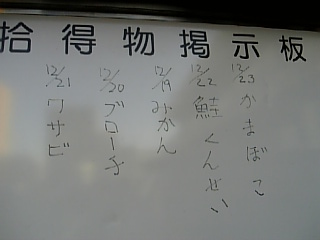 拾得物掲示板
12/23 かまぼこ
12/22 鮭くんせい
12/19 みかん
12/20 ブローチ
12/21 ワサビ